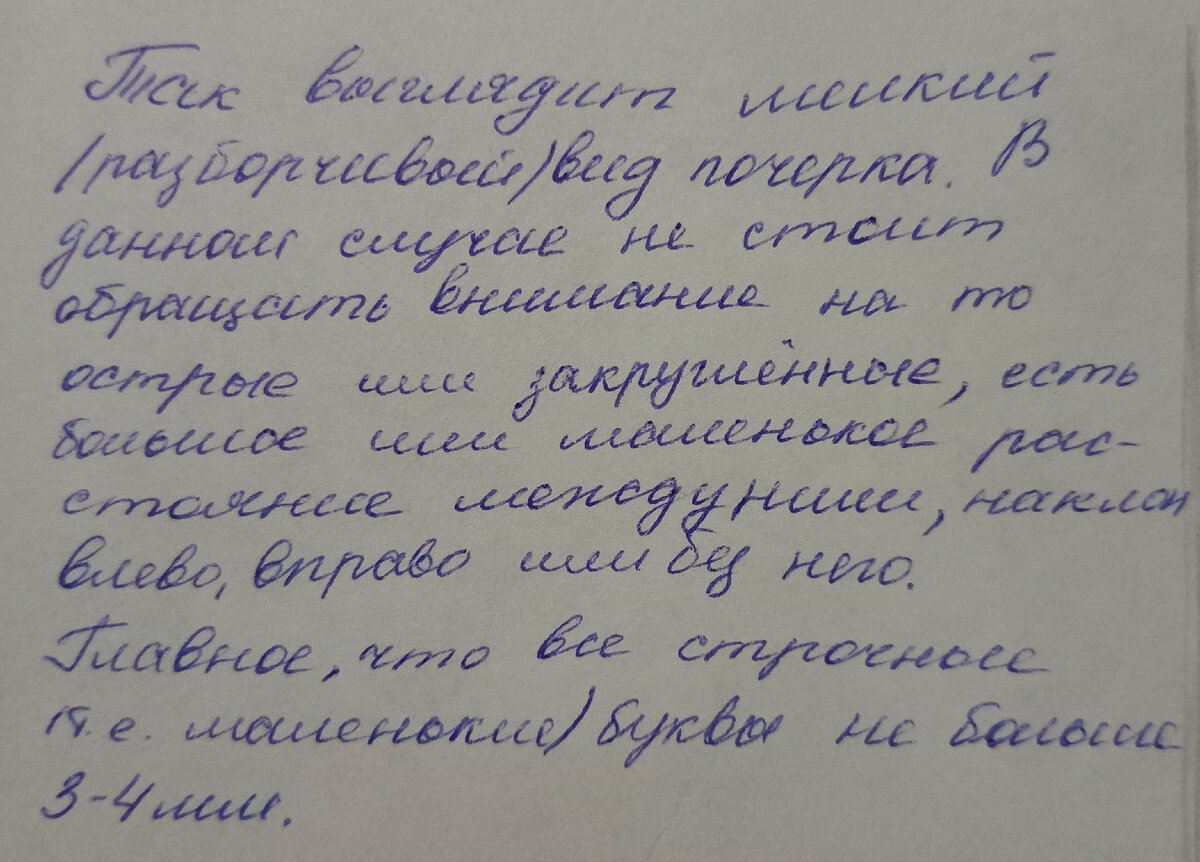 Так выглядит мелкий
(разборчивый) вид почерка. В
данном случае не стоит
обращать внимание на то
острые или закруглённые, есть
большое или маленькое рас-
стояние между ними, наклон
влево, вправо или без него.
Главное, что все строчные
(т.е. маленькие) буквы не больше
3-4 мм.